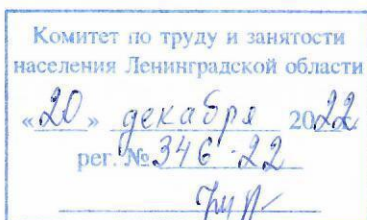 Комитет по труду и занятости
населения Ленинградской области
«20» декабря 2022
рег. № 346-22